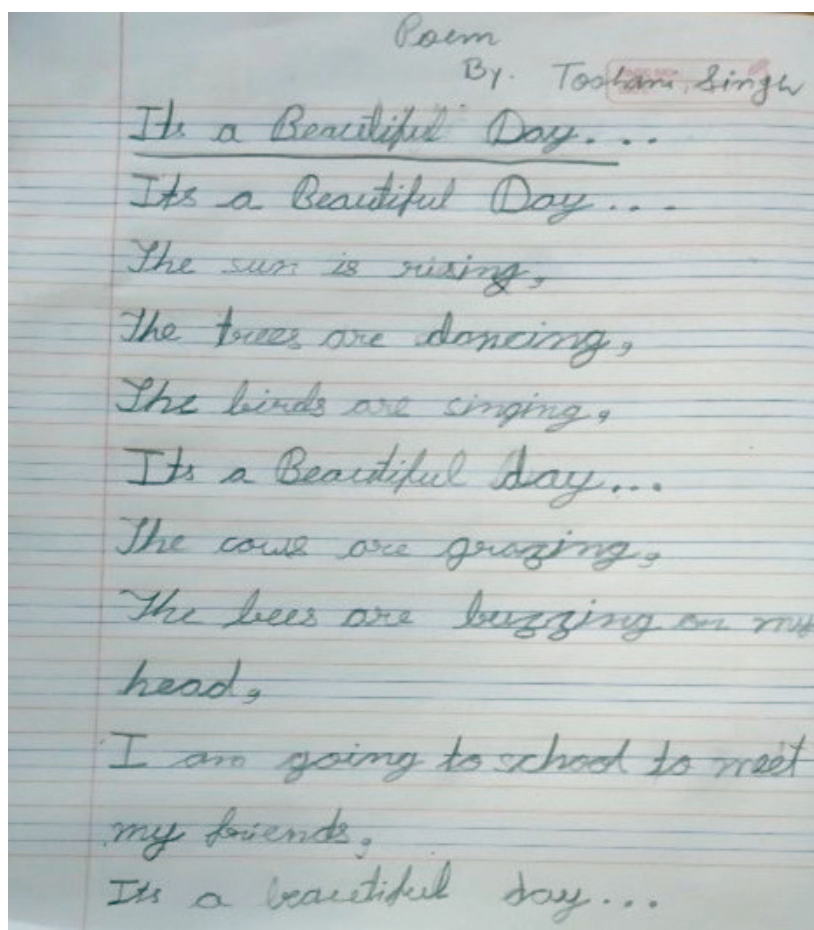 Poem
By. Toshani Singh
Its a Beautiful Day...
Its a Beautiful Day....
The sun is rising,
The trees are dancing,
The birds are singing,
Its a Beautiful day...
The cows are grazing,
The bees are buzzing on my
head,
I am going to school to meet
my friends,
Its a beautiful day...